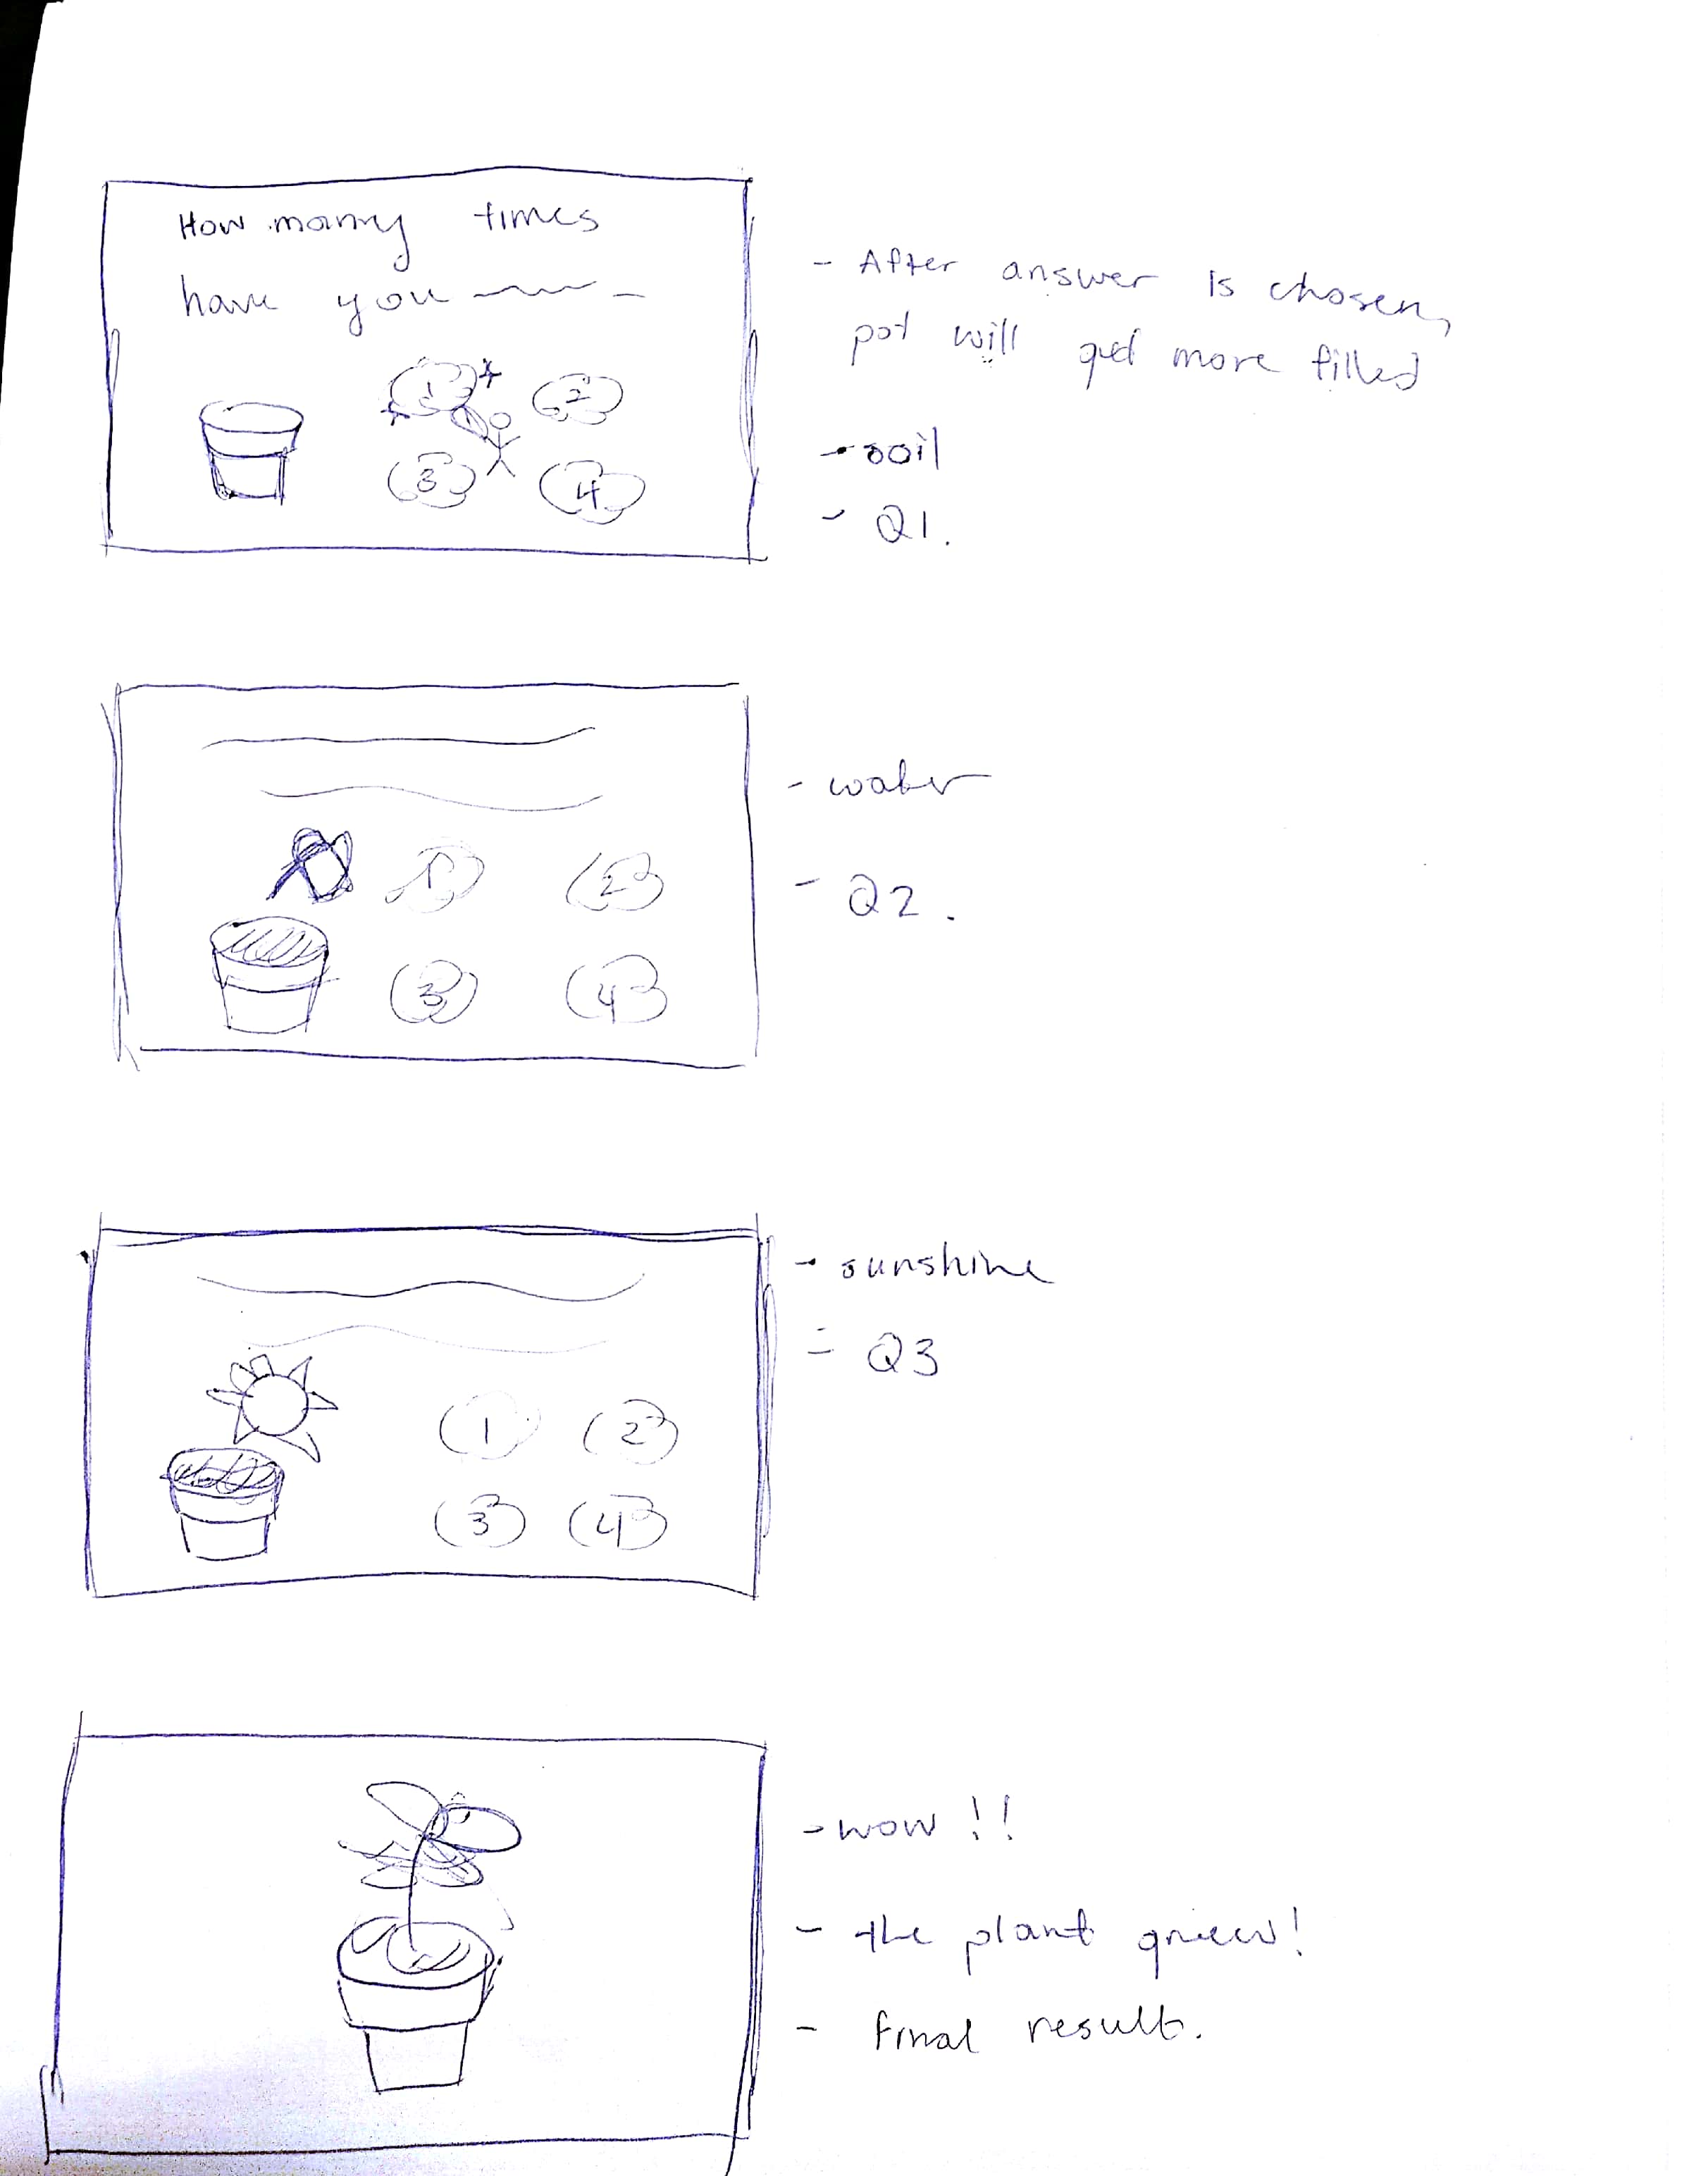 How many times
have you
1 2
3 4
- After answer is chosen,
pot will get more filled
- soil
- Q1.
1 2
3 4
- water
- Q2.
1 2
3 4
- sunshine
- Q3
- wow!!
- the plant grew!
- final result.